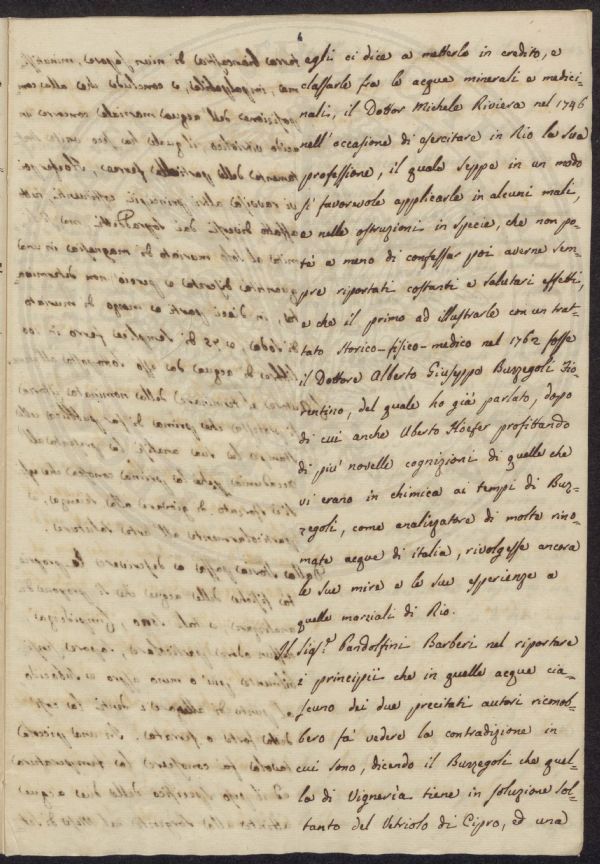 egli ci dice a metterle in credito, e
classarle fra le acque minerali e medici=
nali, il Dottor Michele Riviera nel 1746
nell'occasione di esercitare in Rio la sua
professione, il quale seppe in un modo
sì favorevole applicarle in alcuni mali,
e nelle ostruzioni in specie, che non po=
tè a meno di confessar poi averne sem=
pre riportati costanti e salutari effetti,
e che il primo ad illustrarle con un trat=
tato storico-fisico-medico nel 1762 fosse
il Dottore Alberto Giuseppe Buzzegoli Fio=
rentino, del quale ho già parlato, dopo
di cui anche Uberto Hoefer profittando
di più novelle cognizioni di quelle che
vi erano in chimica ai tempi di Buz=
zegoli, come analizzatore di molte rino=
mate acque di italia, rivolgesse ancora
le sue mire e le sue esperienze a
quelle marziali di Rio.
Il Sig.r Pandolfini Barberi nel riportare
i principii che in quelle acque cia=
scuno dei due precitati autori riconob=
bero fa vedere la contradizione in
cui sono, dicendo il Buzzegoli che quel=
la di Vigneria tiene in soluzione sol=
tanto del Vetriolo di Cipro, ed una